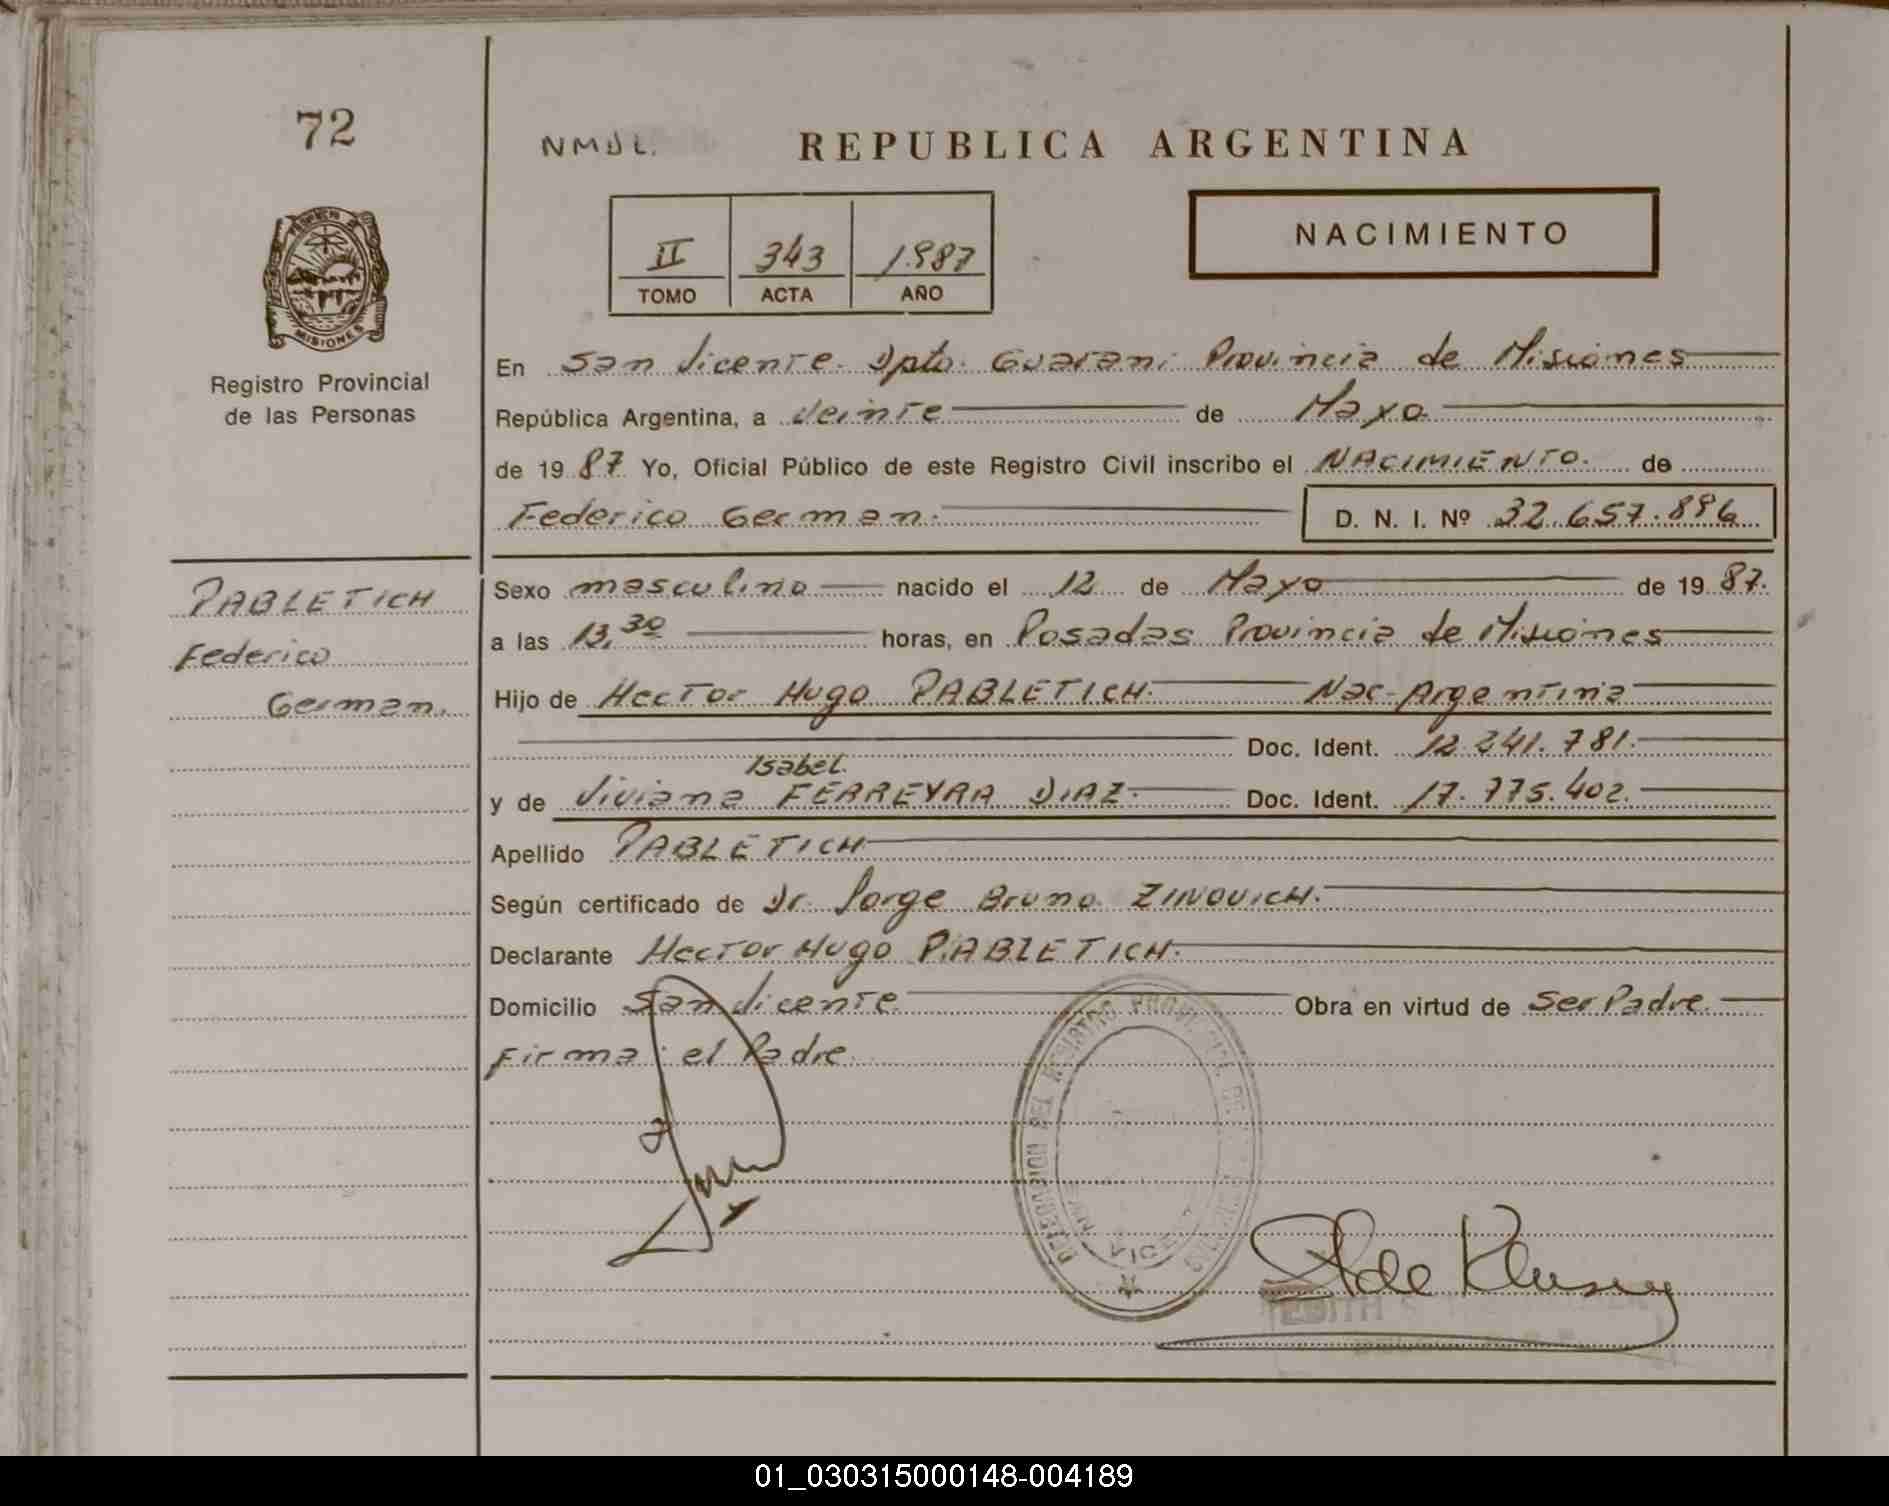 72
NMUL.
REPUBLICA ARGENTINA
NACIMIENTO
II 343 1.987
TOMO ACTA AÑO
MISIONES
Registro Provincial
de las Personas
En San Vicente. Dpto. Guarani Provincia de Misiones
República Argentina, a Veinte de Mayo
de 19 87 Yo, Oficial Público de este Registro Civil inscribo el NACIMIENTO. de
Federico German.
D. N. I. Nº 32.657.896
PABLETICH
Federico
German.
Sexo masculino nacido el 12 de Mayo de 19 87.
a las 13,30 horas, en Posadas Provincia de Misiones
Hijo de Hector Hugo PABLETICH. Nac. Argentina
Doc. Ident. 12.241.781.
Isabel.
y de Viviana FERREYRA DIAZ. Doc. Ident. 17.775.402.
Apellido PABLETICH
Según certificado de Dr. Jorge Bruno ZINOVICH.
Declarante Hector Hugo PABLETICH.
Domicilio San Vicente. Obra en virtud de Ser Padre.
Firma: el Padre.
DELEGACION DEL REGISTRO PROVINCIAL DE
EDITH
01_030315000148-004189